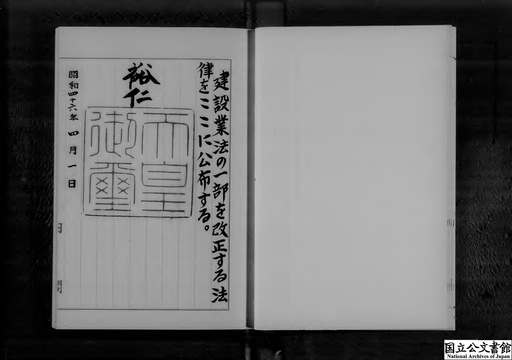 建設業法の一部を改正する法
律をここに公布する。
裕仁
天皇
御璽
昭和四十六年四月一日
国立公文書館
National Archives of Japan